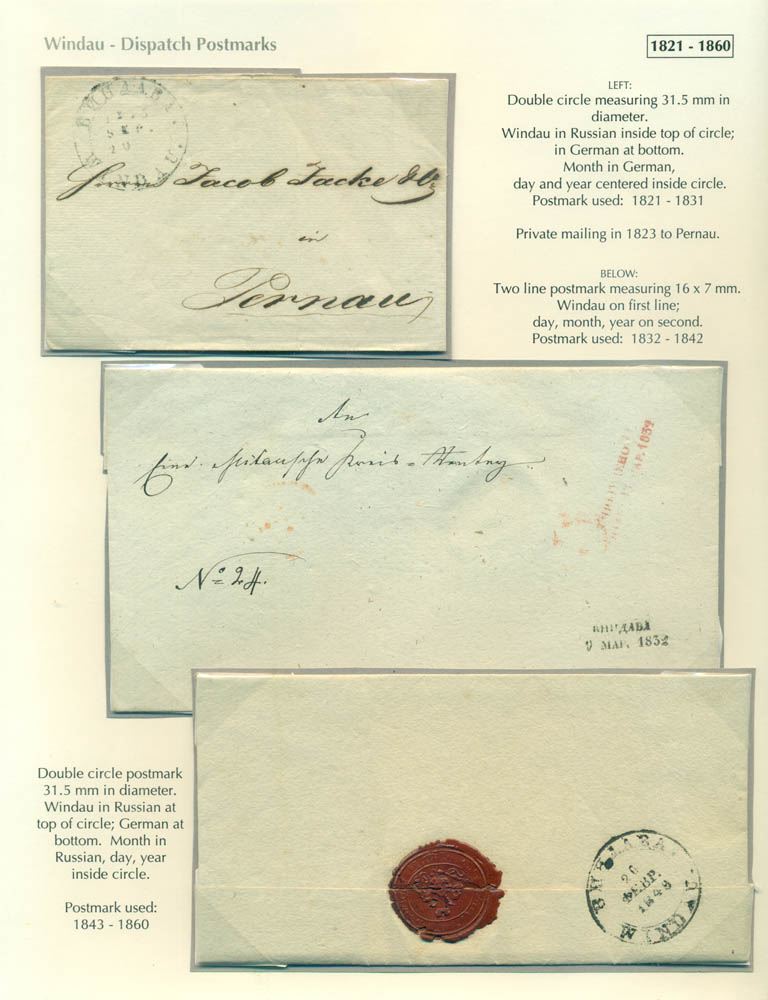 Windau - Dispatch Postmarks
1821 - 1860
LEFT:
Double circle measuring 31.5 mm in
diameter.
Windau in Russian inside top of circle;
in German at bottom.
Month in German,
day and year centered inside circle.
Postmark used: 1821 - 1831
Private mailing in 1823 to Pernau.
Jacob Jacke & Co
in
Pernau
BELOW:
Two line postmark measuring 16 x 7 mm.
Windau on first line;
day, month, year on second.
Postmark used: 1832 - 1842
An
Eine Mitausche Kreis-
No 24.
МАР. 1832
ВИНДАВА
9 МАР. 1832
Double circle postmark
31.5 mm in diameter.
Windau in Russian at
top of circle; German at
bottom. Month in
Russian, day, year
inside circle.
Postmark used:
1843 - 1860
ВИНДАВА
26
ФЕВР.
1849
WINDAU